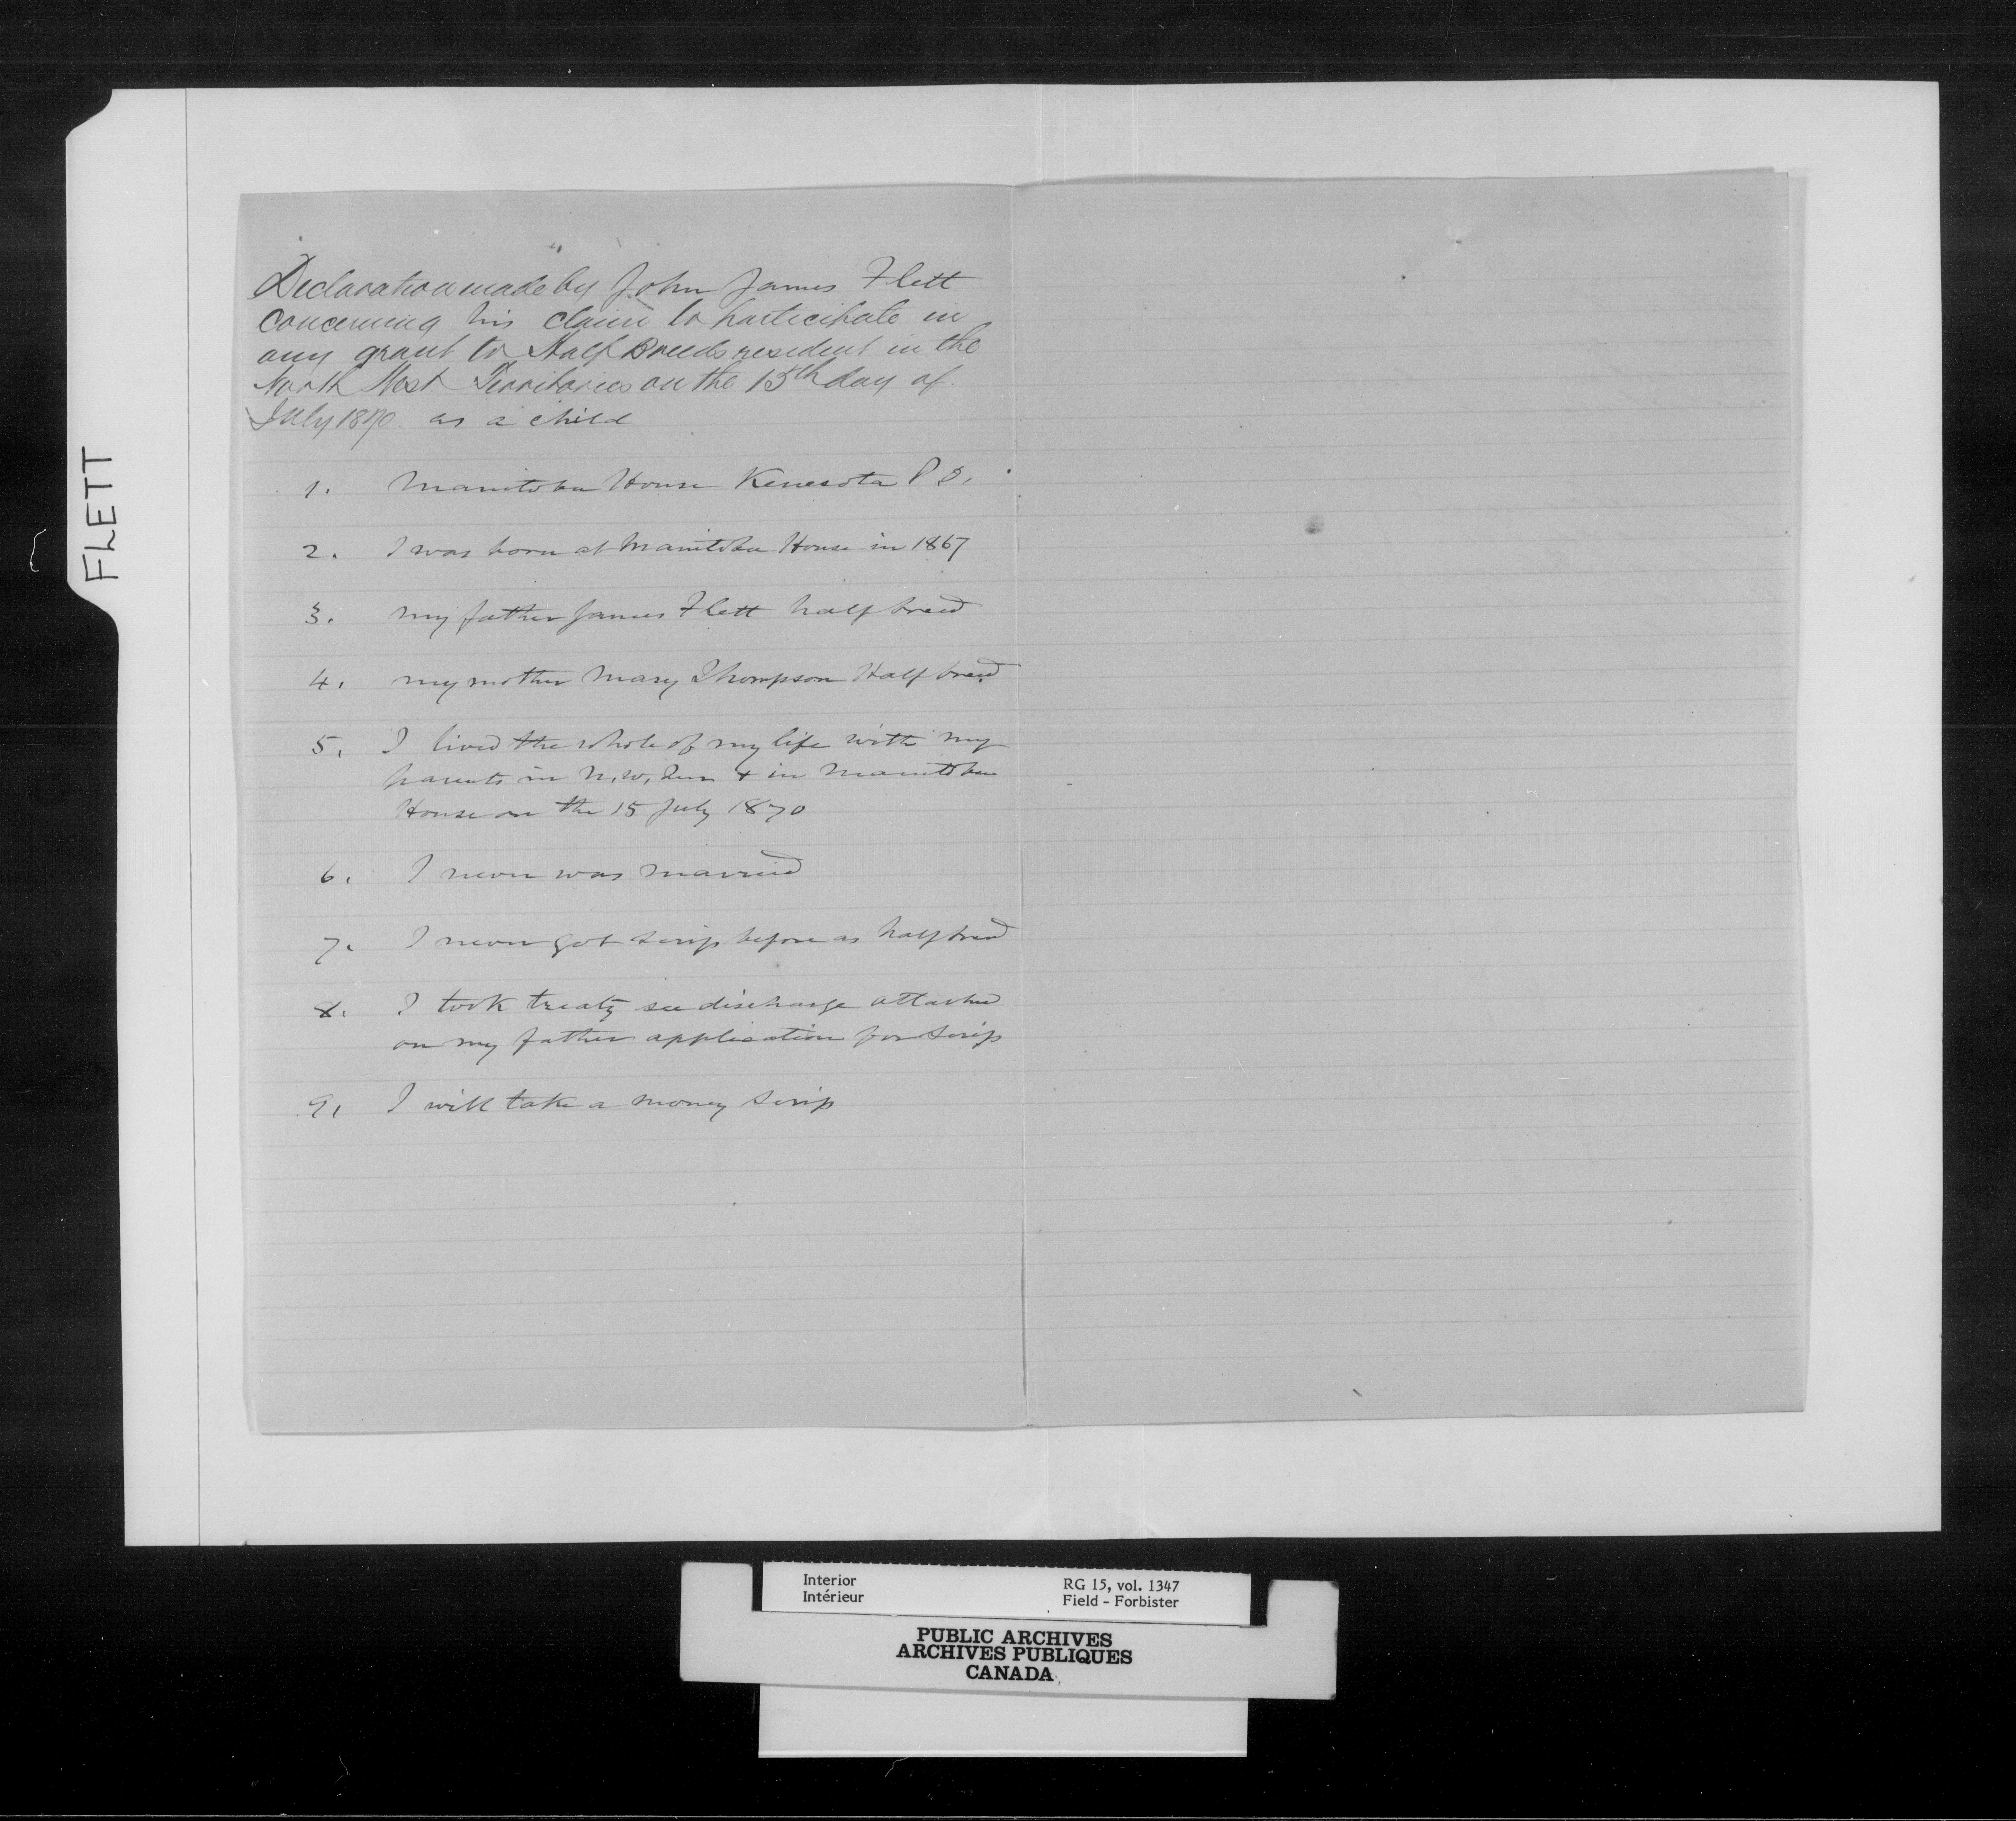 FLETT
Declaration made by John James Flett
concerning his claim to participate in
any grant to Half Breeds resident in the
North West Territories on the 15th day of
July 1870 as a child
1. Manitoba House Kenesota P.O.
2. I was born at Manitoba House in 1867
3. my father James Flett half breed
4. my mother Mary Thompson Half breed
5. I lived the whole of my life with my
parents in N.W. Terr & in Manitoba
House on the 15 July 1870
6. I never was married
7. I never got scrip before as half breed
8. I took treaty see discharge attached
on my father application for scrip
9. I will take a money scrip
Interior RG 15, vol. 1347
Intérieur Field - Forbister
PUBLIC ARCHIVES
ARCHIVES PUBLIQUES
CANADA